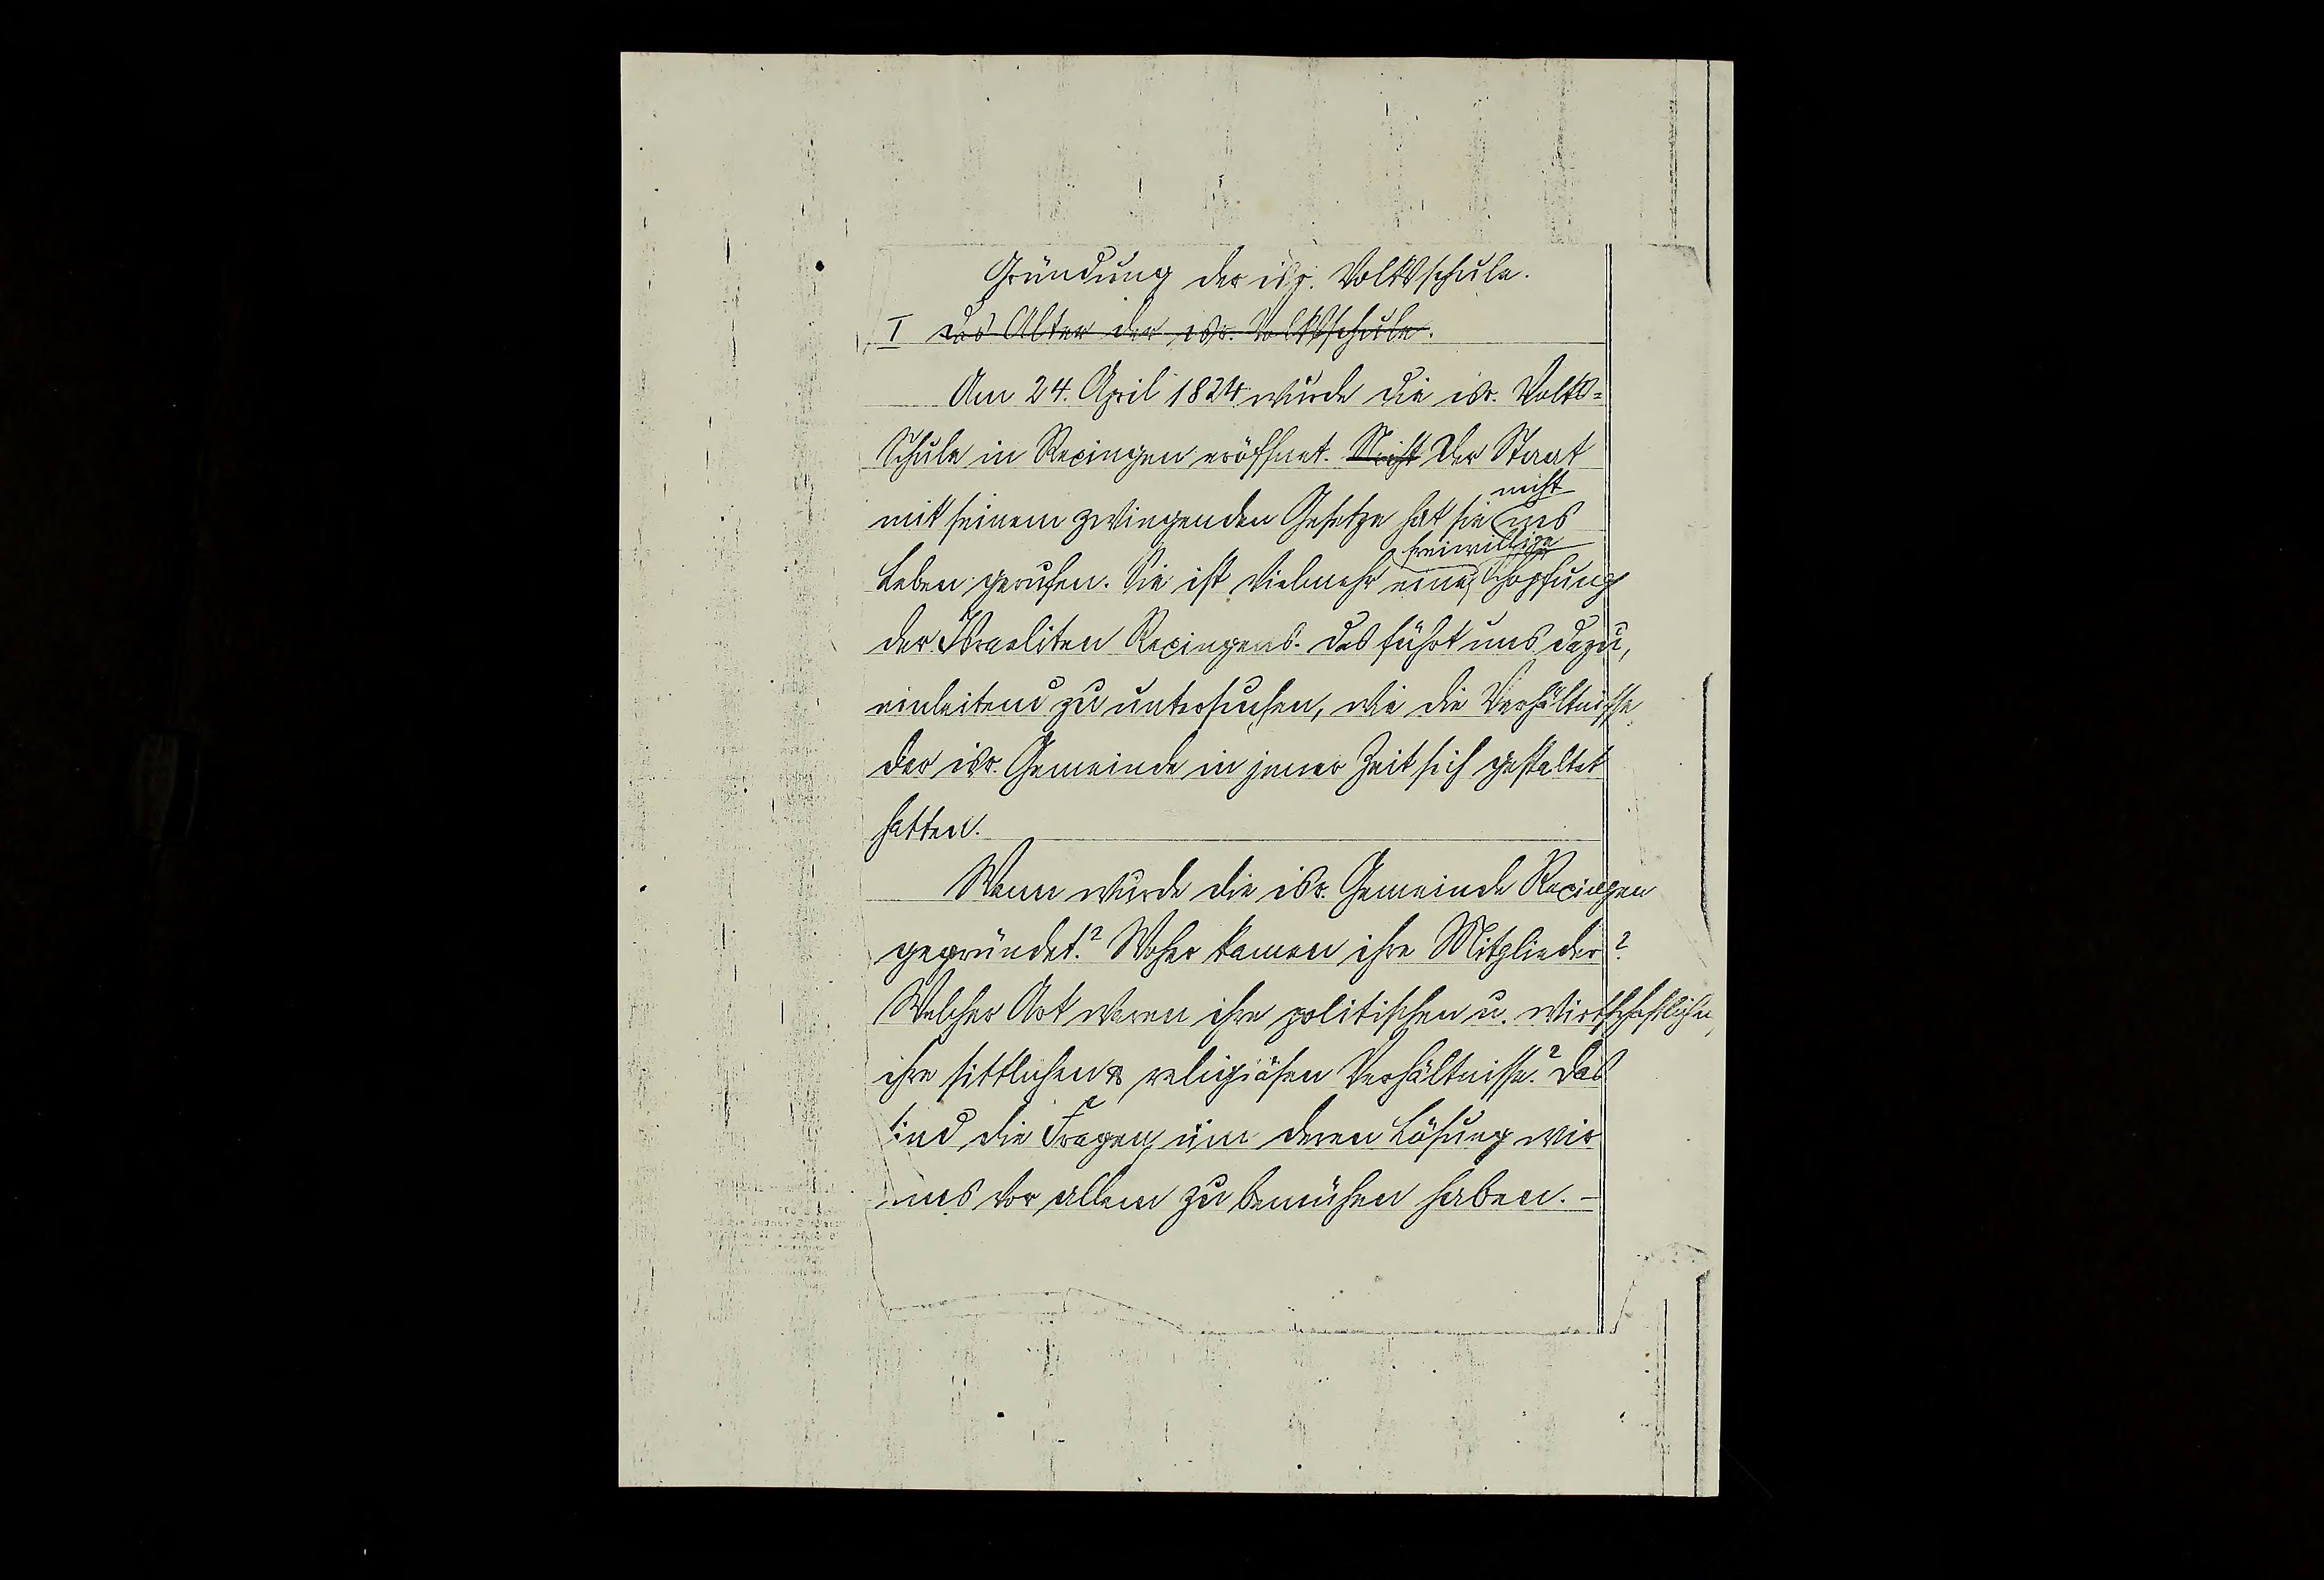 Gründung der isr. Volksschule.
I Das Alter der isr. Volksschule.
Am 24. April 1824 wurde die isr. Volks=
Schule in Rexingen eröffnet. Nicht Der Staat
nicht
mit seinem zwingenden Gesetze hat sie ins
freiwillige
Leben gerufen. Sie ist vielmehr eine Schöpfung
der Israeliten Rexingens. Das führt uns dazu,
einleitend zu untersuchen, wie die Verhältnisse
der isr. Gemeinde in jener Zeit sich gestaltet
hatten.
Wann wurde die isr. Gemeinde Rexingen
gegründet? Woher kamen ihre Mitglieder?
Welcher Art waren ihre politischen u. wirtschaftlichen,
ihre sittlichen & religiösen Verhältnisse? Das
sind die Fragen, um deren Lösung wir
uns vor allem zu bemühen haben. –